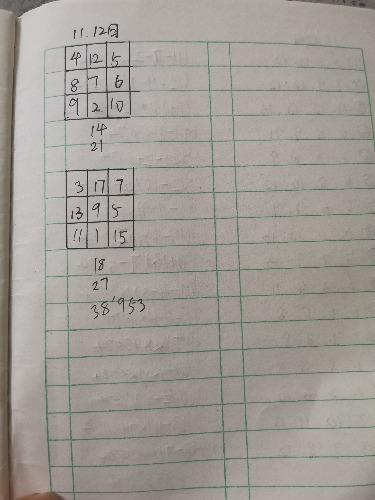 11.12日
4 12 5
8 7 6
9 2 10
14
21
3 17 7
13 9 5
11 1 15
18
27
38'953